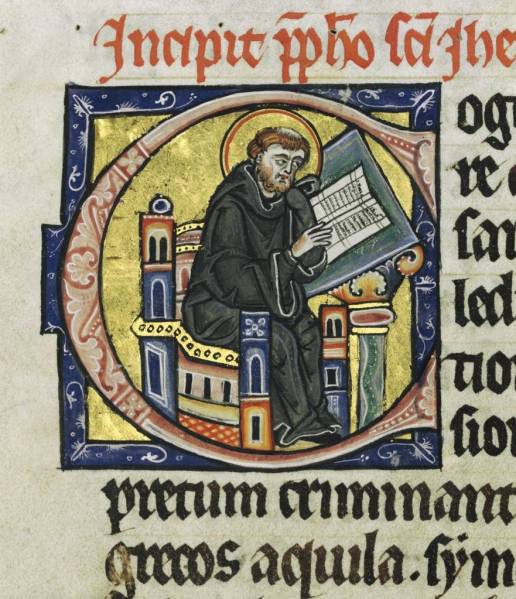 Incipit p̄pho sc̄i Jhe
C
og
re
sar
led
tio
sion
pretum criminant
grecos aquila. sym